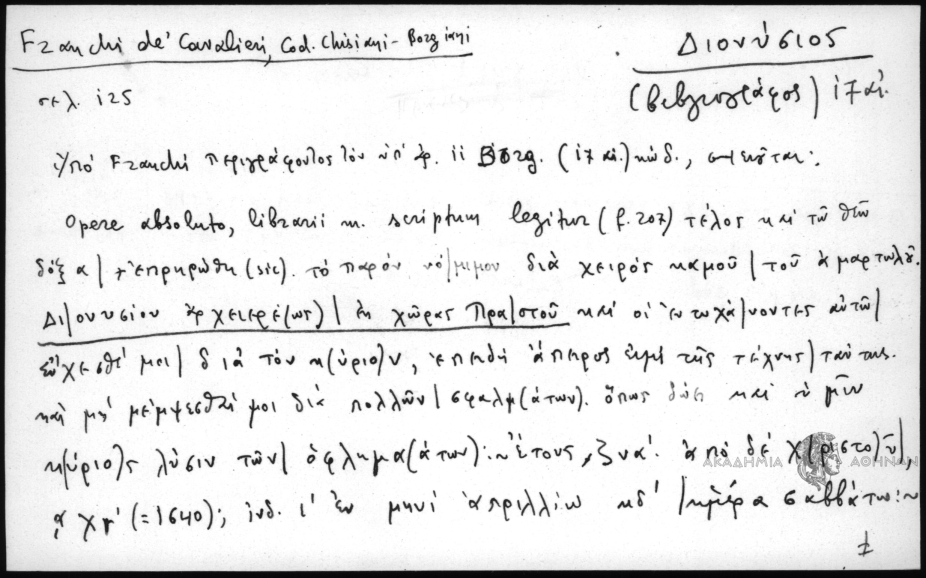 Franchi de' Cavalieri, Cod. Chisiani - Borgiani
Διονύσιος
(βιβλιογράφος) ιζ' αἰ.
σελ. 125
Ὑπό Franchi περιγράφοντος τὸν ὑπ' ἀρ. 11 Borg. (ιζ' αἰ.) κώδ., σημειοῦται:
Opere absoluto, librarii m. scriptum legitur (f. 207) τέλος καὶ τῶ θῶ
δόξα | + ἐπρηρώθη (sic). τὸ παρόν νόμημον διὰ χειρός καμοῦ | τοῦ ἁμαρτωλοῦ.
Δι|ονυσίου ἀρχειερέ(ως) | ἐκ χώρας Πρα|στοῦ καὶ οἱ ἐντυχά|νοντες αὐτῶ |
εὔχεσθέ μοι | διὰ τὸν κ(ύριο)ν, ἐπειδή ἄπειρος εἰμὶ τῆς τέχνης | ταύτης.
καὶ μὴ μέμψεσθαί μοι διὰ πολλῶν | σφαλμ(άτων). ὅπως δώει καὶ ὑμῖν
κ(ύριο)ς λύσιν τῶν | ὀφλημα(άτων) :~ ἔτους ͵ζνα'. ἀπό δέ Χ(ριστο)ῦ |,
͵αχμ' (=1640); ἰνδ. ι' ἐν μηνί ἀπριλλίω κδ' | ἡμέρα σαββάτω :~
ΑΚΑΔΗΜΙΑ ΑΘΗΝΩΝ